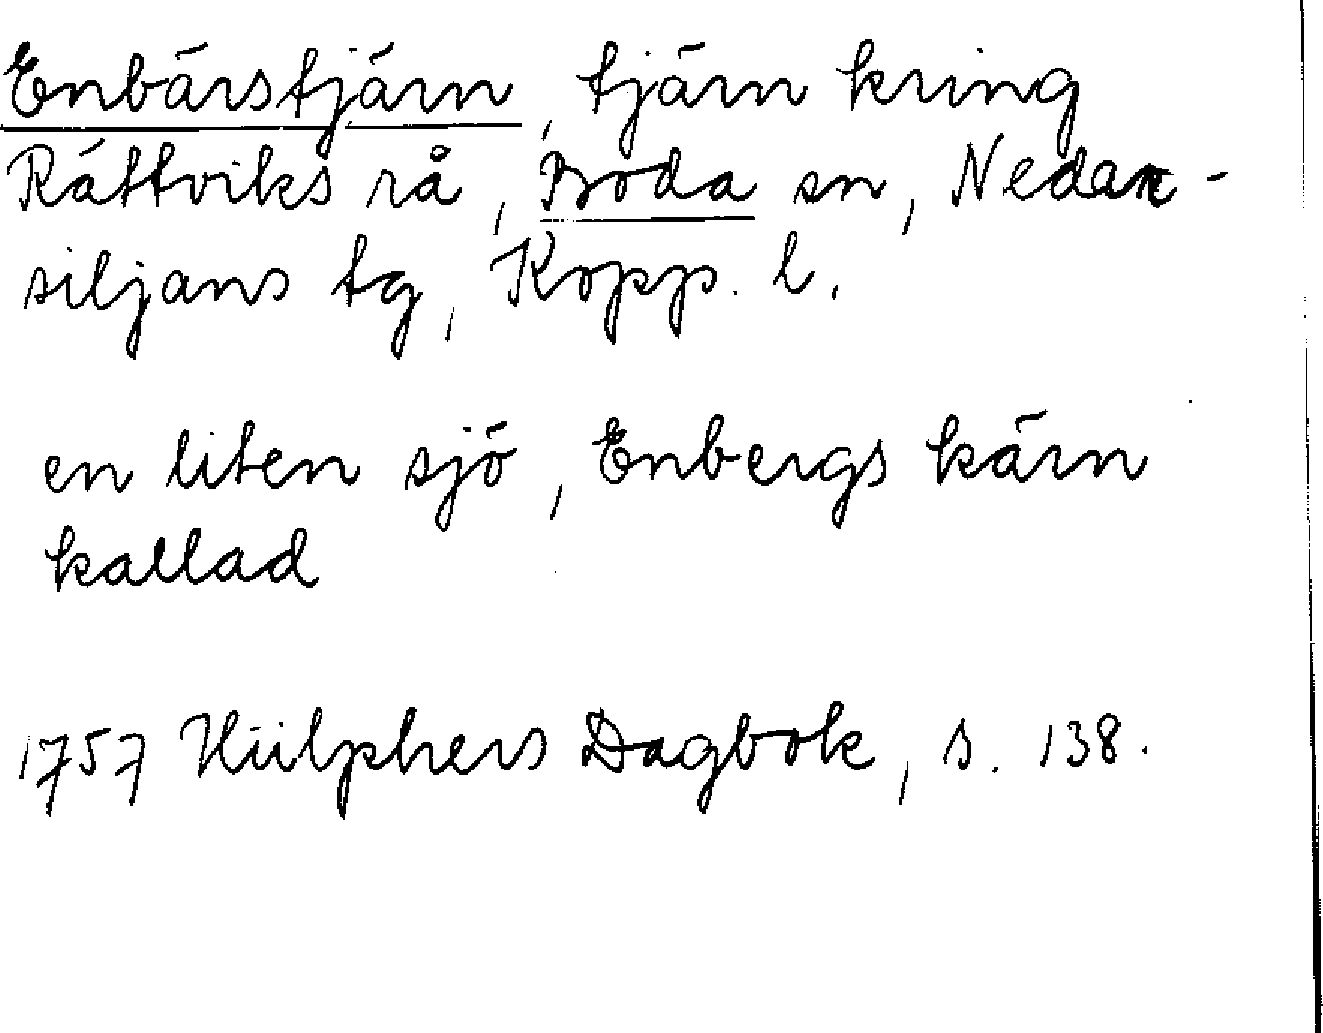 Enbärstjärn, tjärn kring
Rättviks rå, Boda sn, Nedan-
siljans tg, Kopp. l.
en liten sjö, Enbergs kärn
kallad
1757 Hülphers Dagbok, s. 138.